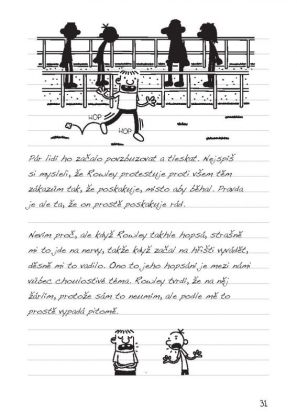 HOP
HOP
Pár lidí ho začalo povzbuzovat a tleskat. Nejspíš
si mysleli, že Rowley protestuje proti všem těm
zákazům tak, že poskakuje, místo aby běhal. Pravda
je ale ta, že on prostě poskakuje rád.
Nevím proč, ale když Rowley takhle hopsá, strašně
mi to jde na nervy, takže když začal na hřišti vyvádět,
děsně mi to vadilo. Ono to jeho hopsání je mezi námi
vůbec choulostivé téma. Rowley tvrdí, že na něj
žárlím, protože sám to neumím, ale podle mě to
prostě vypadá pitomě.
31